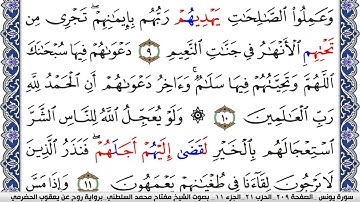 وَعَمِلُوا۟ ٱلصَّـٰلِحَـٰتِ يَهْدِيهُمْ رَبُّهُم بِإِيمَـٰنِهِمْ ۖ تَجْرِى مِن
تَحْتِهِمِ ٱلْأَنْهَـٰرُ فِى جَنَّـٰتِ ٱلنَّعِيمِ ٩ دَعْوَىٰهُمْ فِيهَا سُبْحَـٰنَكَ
ٱللَّهُمَّ وَتَحِيَّتُهُمْ فِيهَا سَلَـٰمٌ ۚ وَءَاخِرُ دَعْوَىٰهُمْ أَنِ ٱلْحَمْدُ لِلَّهِ
رَبِّ ٱلْعَـٰلَمِينَ ١٠ ۞ وَلَوْ يُعَجِّلُ ٱللَّهُ لِلنَّاسِ ٱلشَّرَّ
ٱسْتِعْجَالَهُم بِٱلْخَيْرِ لَقَضَىٰ إِلَيْهُمْ أَجَلَهُمْ ۖ فَنَذَرُ ٱلَّذِينَ
لَا يَرْجُونَ لِقَآءَنَا فِى طُغْيَـٰنِهِمْ يَعْمَهُونَ ١١ وَإِذَا مَسَّ
سورة يونس . الصفحة ٢٠٩ . الحزب ٢١ . الجزء ١١ . بصوت الشيخ مفتاح محمد السلطني . برواية روح عن يعقوب الحضرمي